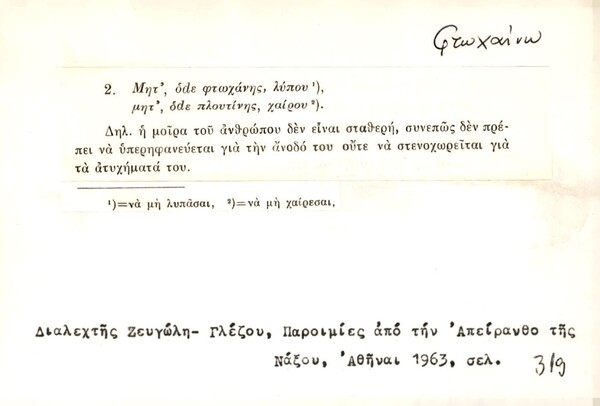 φτωχαίνω
2. Μητ’, ὅdε φτωχάνης, λύπου¹),
μητ’, ὅdε πλουτίνης, χαίρου²).
Δηλ. ἡ μοῖρα τοῦ ἀνθρώπου δὲν εἶναι σταθερή, συνεπῶς δὲν πρέ-
πει νὰ ὑπερηφανεύεται γιὰ τὴν ἄνοδό του οὔτε νὰ στενοχωρεῖται γιὰ
τὰ ἀτυχήματά του.
¹)=νὰ μὴ λυπᾶσαι, ²)=νὰ μὴ χαίρεσαι,
Διαλεχτῆς Ζευγώλη- Γλέζου, Παροιμίες ἀπό τήν Ἀπείρανθο τῆς
Νάξου, Ἀθῆναι 1963, σελ. 319